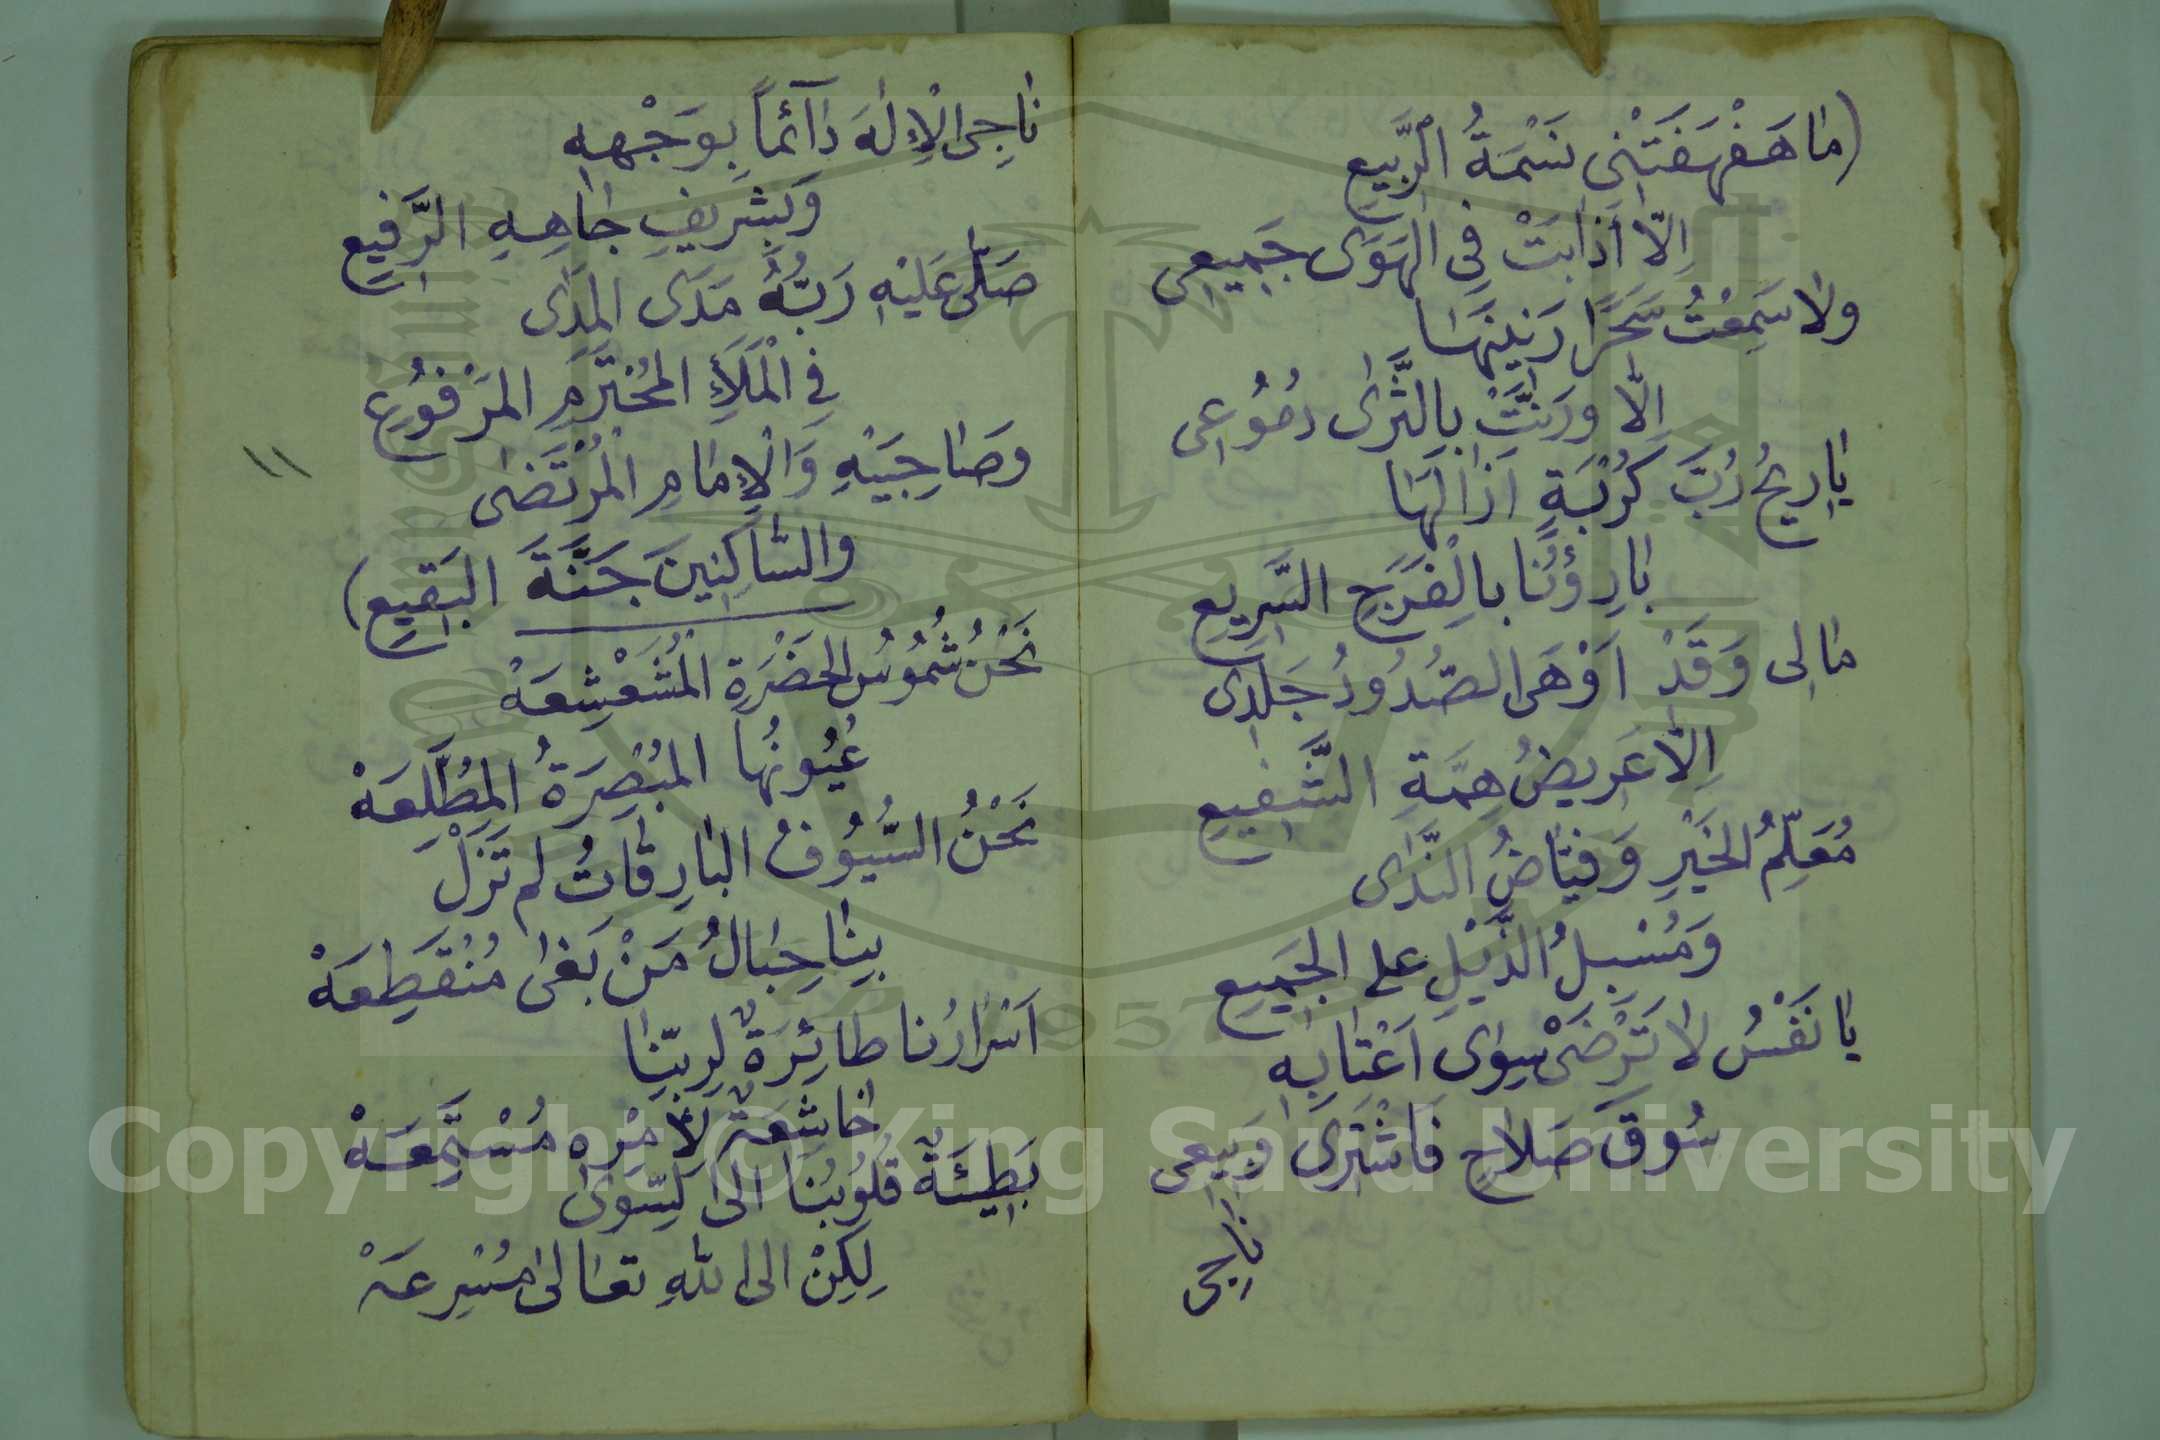 (مَا هَفْهَفَتْنِي نَسْمَةُ الرَّبِيعِ
اِلَّا اَذَابَتْ فِي الْهَوَى جَمِيعِى
وَلَا سَمِعْتُ سَحَرًا رَنِينَهَا
اِلَّا وَرَنَّتْ بِالثَّرَى دُمُوعِى
يَارِيحُ رُبَّ كُرْبَةٍ اَزَالَهَا
بَارِؤُنَا بِالْفَرَجِ السَّرِيعِ
مَالِى وَقَدْ اَوْهَى الصُّدُودُ جَلَدِى
اِلَّا عَرِيضُ هِمَّةِ الشَّفِيعِ
مُعَلِّمُ الْخَيْرِ وَفَيَّاضُ النَّدَى
وَمُسْبِلُ الذَّيْلِ عَلَى الْجَمِيعِ
يَا نَفْسُ لَا تَرْضَىْ سِوَى اَعْتَابِهِ
سُوقَ صَلَاحٍ فَاشْتَرِى وَبِيعِى
نَاجِى
نَاجِى الْاِلٰهَ دَآئِماً بِوَجْهِهِ
وَبِشَرِيفِ جَاهِهِ الرَّفِيعِ
صَلَّى عَلَيْهِ رَبُّهُ مَدَى الْمَدَى
فِي الْمَلَأِ الْمُحْتَرَمِ الْمَرْفُوعِ
وَصَاحِبَيْهِ وَالْاِمَامِ الْمُرْتَضَى
١١
وَالسَّاكِنِينَ جَنَّةَ الْبَقِيعِ)
نَحْنُ شُمُوسُ الْحَضْرَةِ الْمُشَعْشِعَهْ
عُيُونُهَا الْمُبْصِرَةُ الْمُطَّلِعَهْ
نَحْنُ السُّيُوفُ الْبَارِقَاتُ لَم تَزَلْ
بِنَا حِبَالُ مَنْ بَغَى مُنْقَطِعَهْ
اَسْرَارُنَا طَائِرَةٌ لِرَبِّنَا
خَاشِعَةٌ لِأَمْرِهِ مُسْتَمِعَهْ
بَطِيئَةٌ قُلُوبُنَا اِلَى السِّوَى
لٰكِنْ اِلَى اللهِ تَعَالَى مُسْرِعَهْ
Copyright © King Saud University
1957